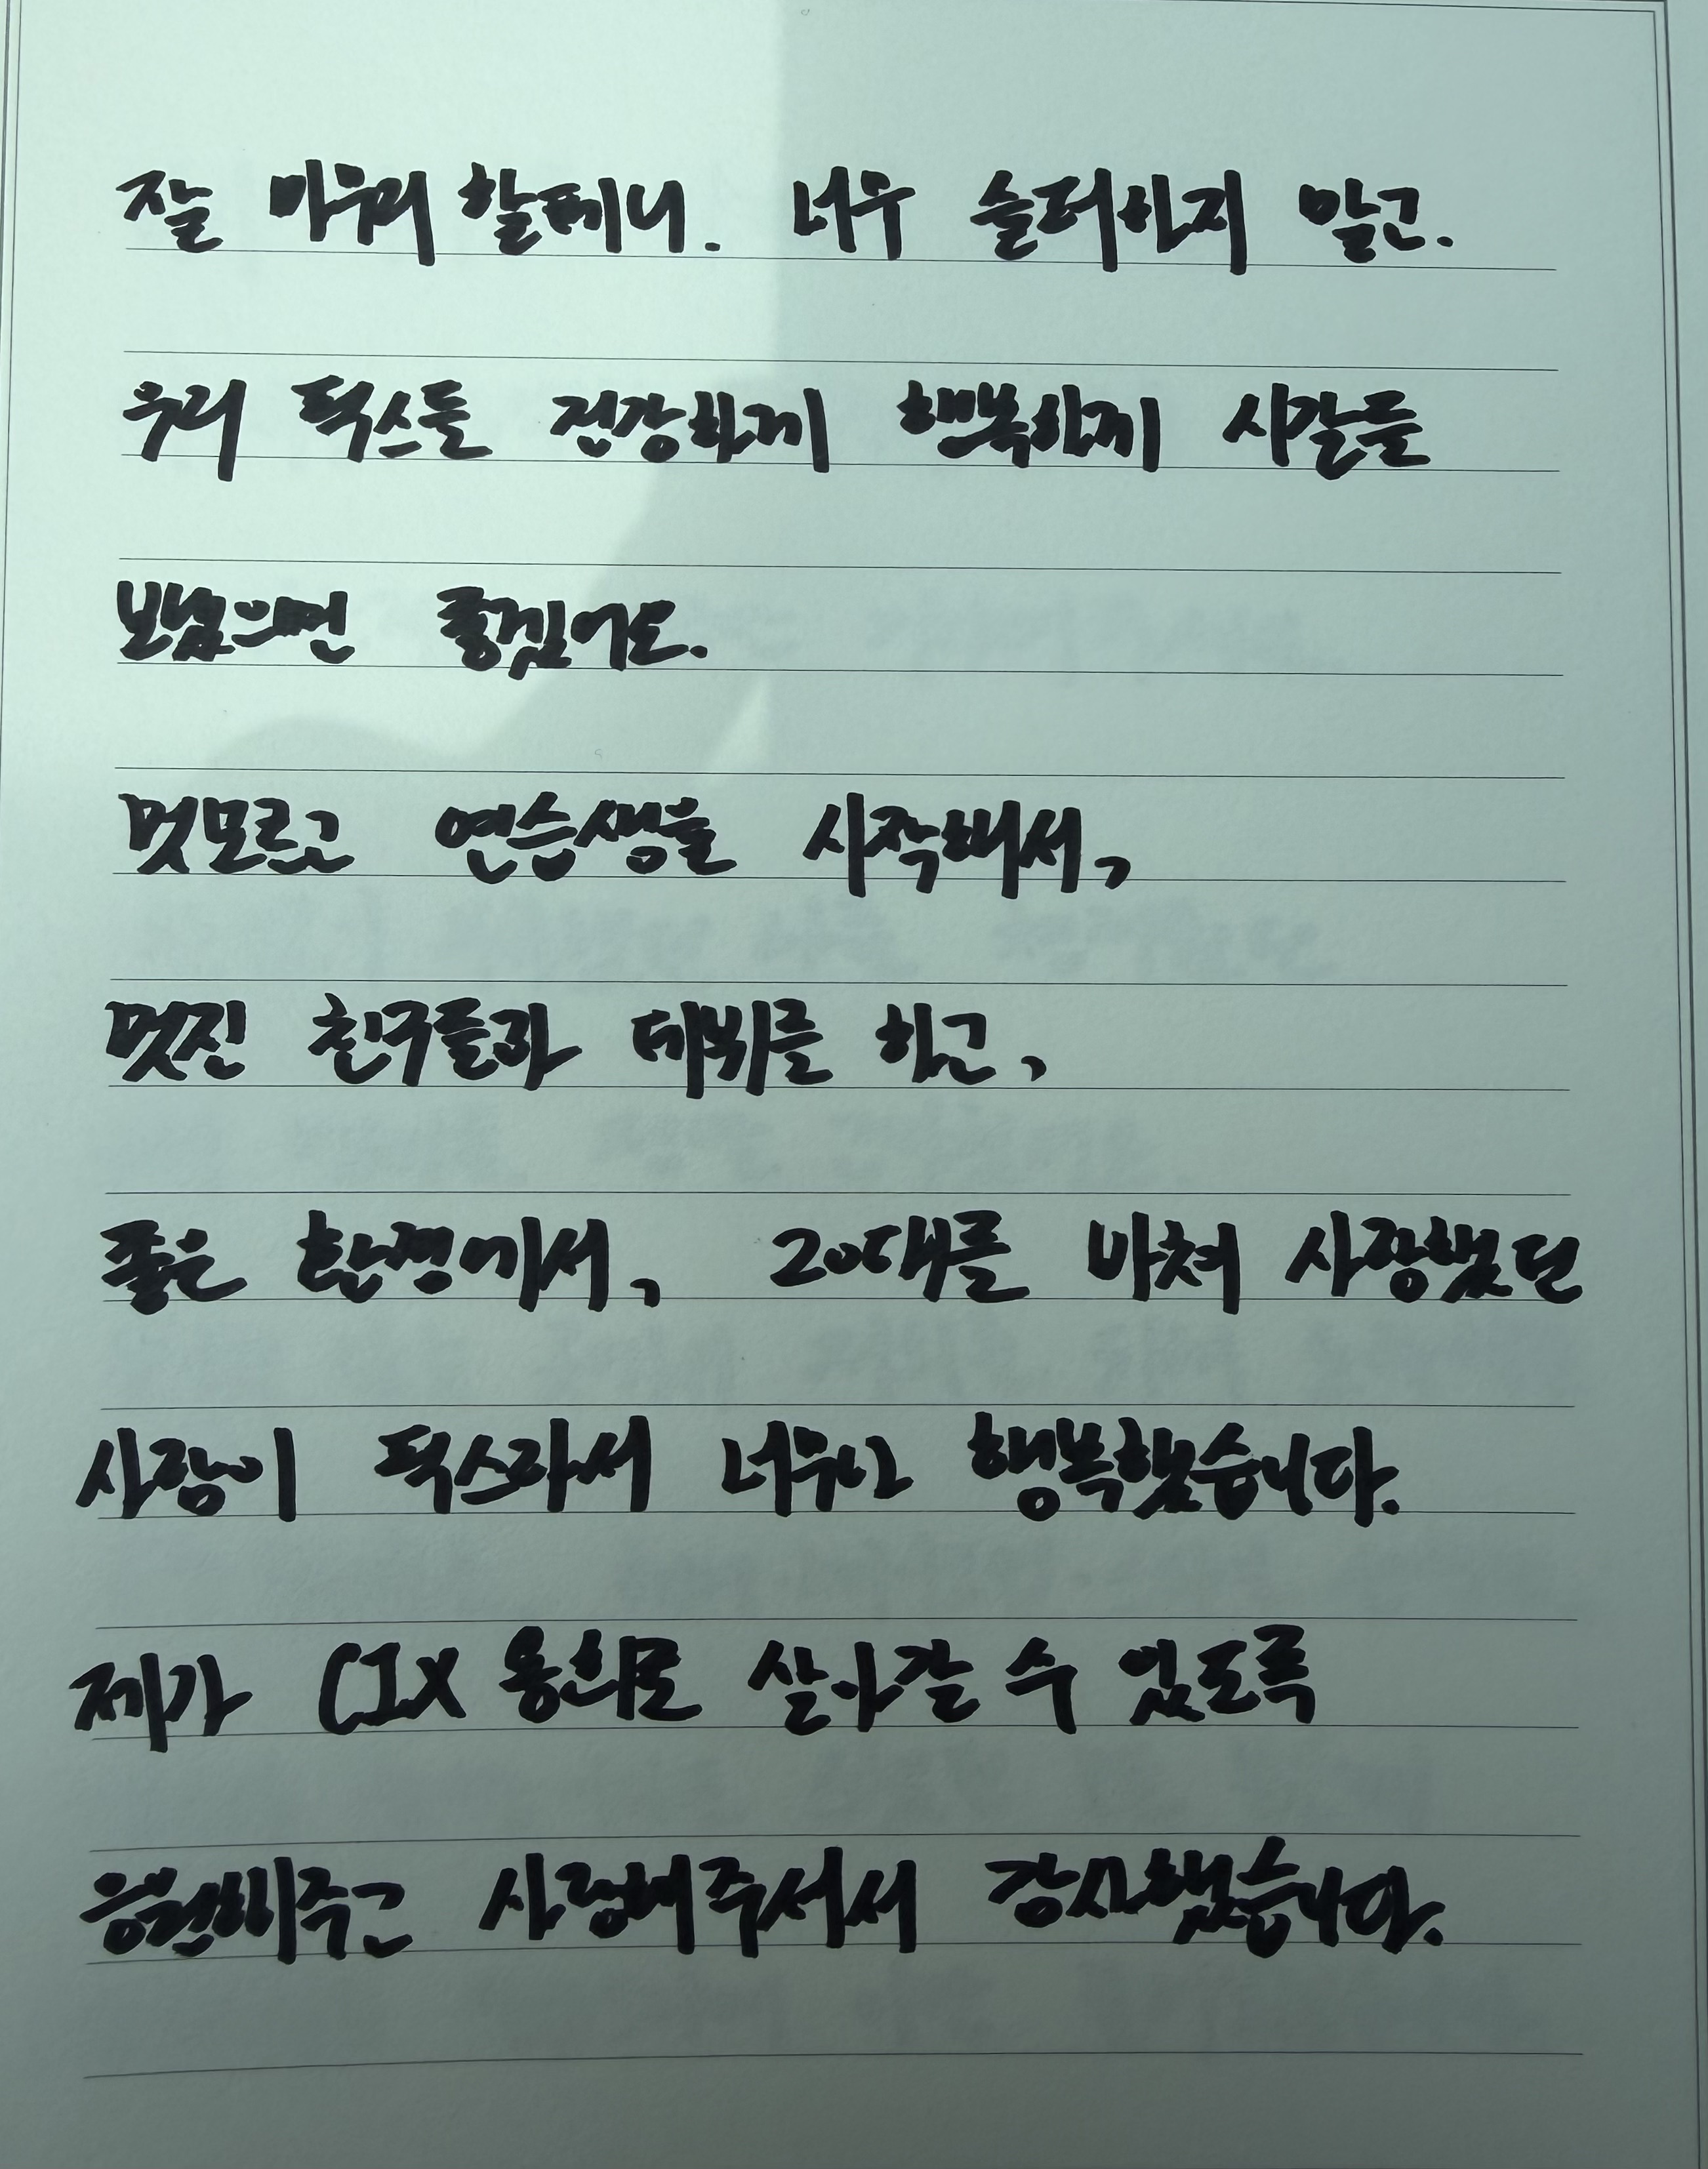 잘 마무리 할테니. 너무 슬퍼하지 말고.
우리 픽스들 건강하게 행복하게 시간들
보냈으면 좋겠어요.
멋모르고 연습생을 시작해서,
멋진 친구들과 데뷔를 하고,
좋은 환경에서, 20대를 바쳐 사랑했던
사랑이 픽스라서 너무나 행복했습니다.
제가 CIX 용희로 살아갈 수 있도록
응원해주고 사랑해주셔서 감사했습니다.